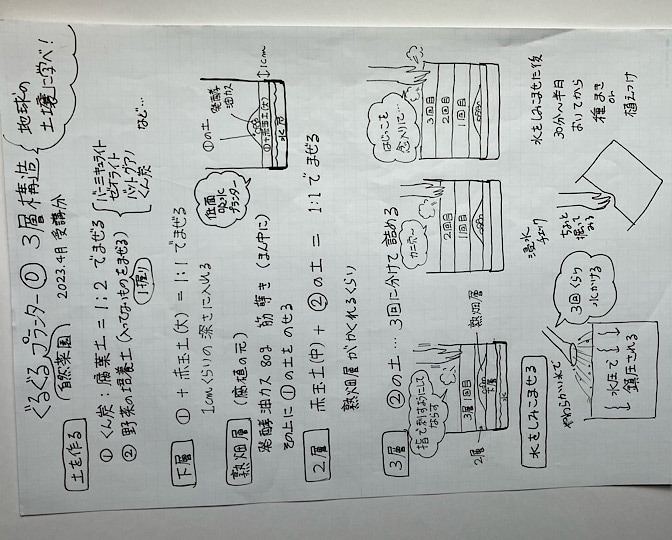 ぐるぐるプランター① 3層構造
地球の
土壌に学べ!
自然菜園
2023.4月 受講分
土を作る
① くん炭:腐葉土=1:2 でまぜる
② 野菜の培養土(入ってないものをまぜる)
1握り
バーミキュライト
ゼオライト
バットグアノ
くん炭
など…
下層
① + 赤玉土(大) = 1:1 でまぜる
1cmくらいの深さに入れる
熟畑層
(腐植の元)
発酵油カス 80g 筋蒔き(まん中に)
その上に①の土をのせる
底面
吸水
プランター
①の土
発酵
油カス
①+赤玉土(大)
1cm
2層
赤玉土(中) + ②の土 = 1:1 でまぜる
熟畑層がかくれるくらい
3層
②の土…3回に分けて詰める
指で刺すようにして
ならす
3層1回目
下層
2層
熟畑層
2回目
1回目
はじっこも
念入りに…
3回目
2回目
1回目
水をしみこませる
やわらかい水で
3回くらい
水かける
水圧で
鎮圧される
浸水
チェック
ちょっと
掘って
みる
水をしみこませた後
30分〜半日
おいてから
種まき
or
植えつけ